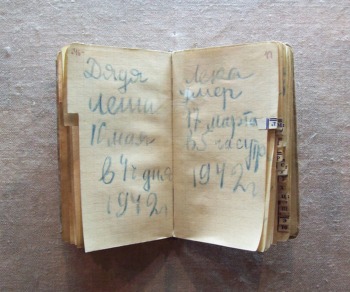 Дядя
Леша
10 мая
в 4 ч дня
1942 г
Лека
умер
17 марта
в 5 час утр
1942 г